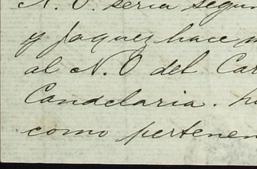 N. O. seria segun
y Jaquez hace m
al N. O del Car
Candelaria. h
como pertenen